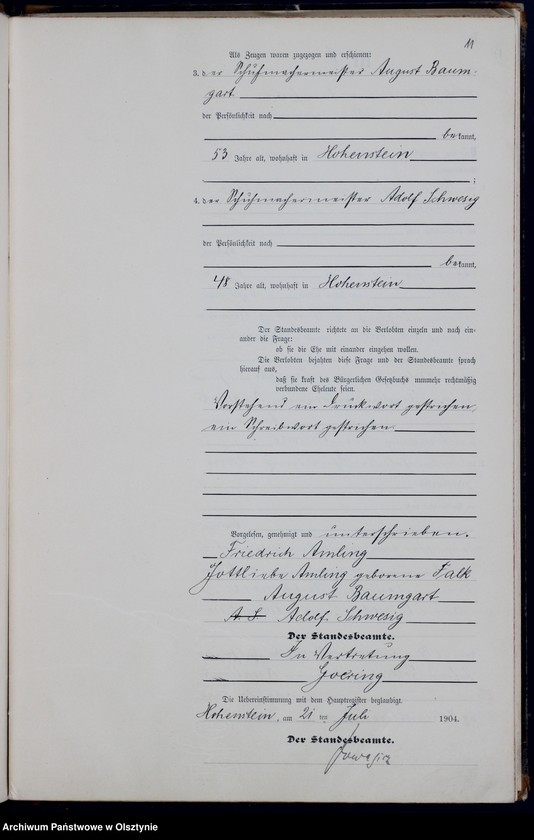 11
Als Zeugen waren zugezogen und erschienen:
3. der Schuhmachermeister August Baum-
gart
der Persönlichkeit nach
bekannt,
53 Jahre alt, wohnhaft in Hohenstein
;
4. der Schuhmachermeister Adolf Schwesig
der Persönlichkeit nach
bekannt,
48 Jahre alt, wohnhaft in Hohenstein
Der Standesbeamte richtete an die Verlobten einzeln und nach ein-
ander die Frage:
ob sie die Ehe mit einander eingehen wollen.
Die Verlobten bejahten diese Frage und der Standesbeamte sprach
hierauf aus,
daß sie kraft des Bürgerlichen Gesetzbuchs nunmehr rechtmäßig
verbundene Eheleute seien.
Vorstehend ein Druckwort gestrichen,
ein Schreibwort gestrichen
Vorgelesen, genehmigt und unterschrieben.
Friedrich Amling
Gottliebe Amling geborene Falk
August Baumgart
A. S Adolf Schwesig
Der Standesbeamte.
In Vertretung
Goering
Die Uebereinstimmung mit dem Hauptregister beglaubigt.
Hohenstein, am 21 ten Juli 1904.
Der Standesbeamte.
Archiwum Państwowe w Olsztynie